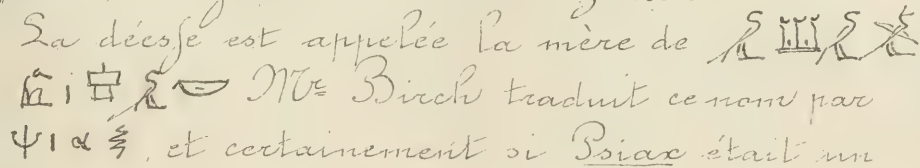 La déesse est appelée la mère de
Mr Birch traduit ce nom par
et certainement si Psiax était un